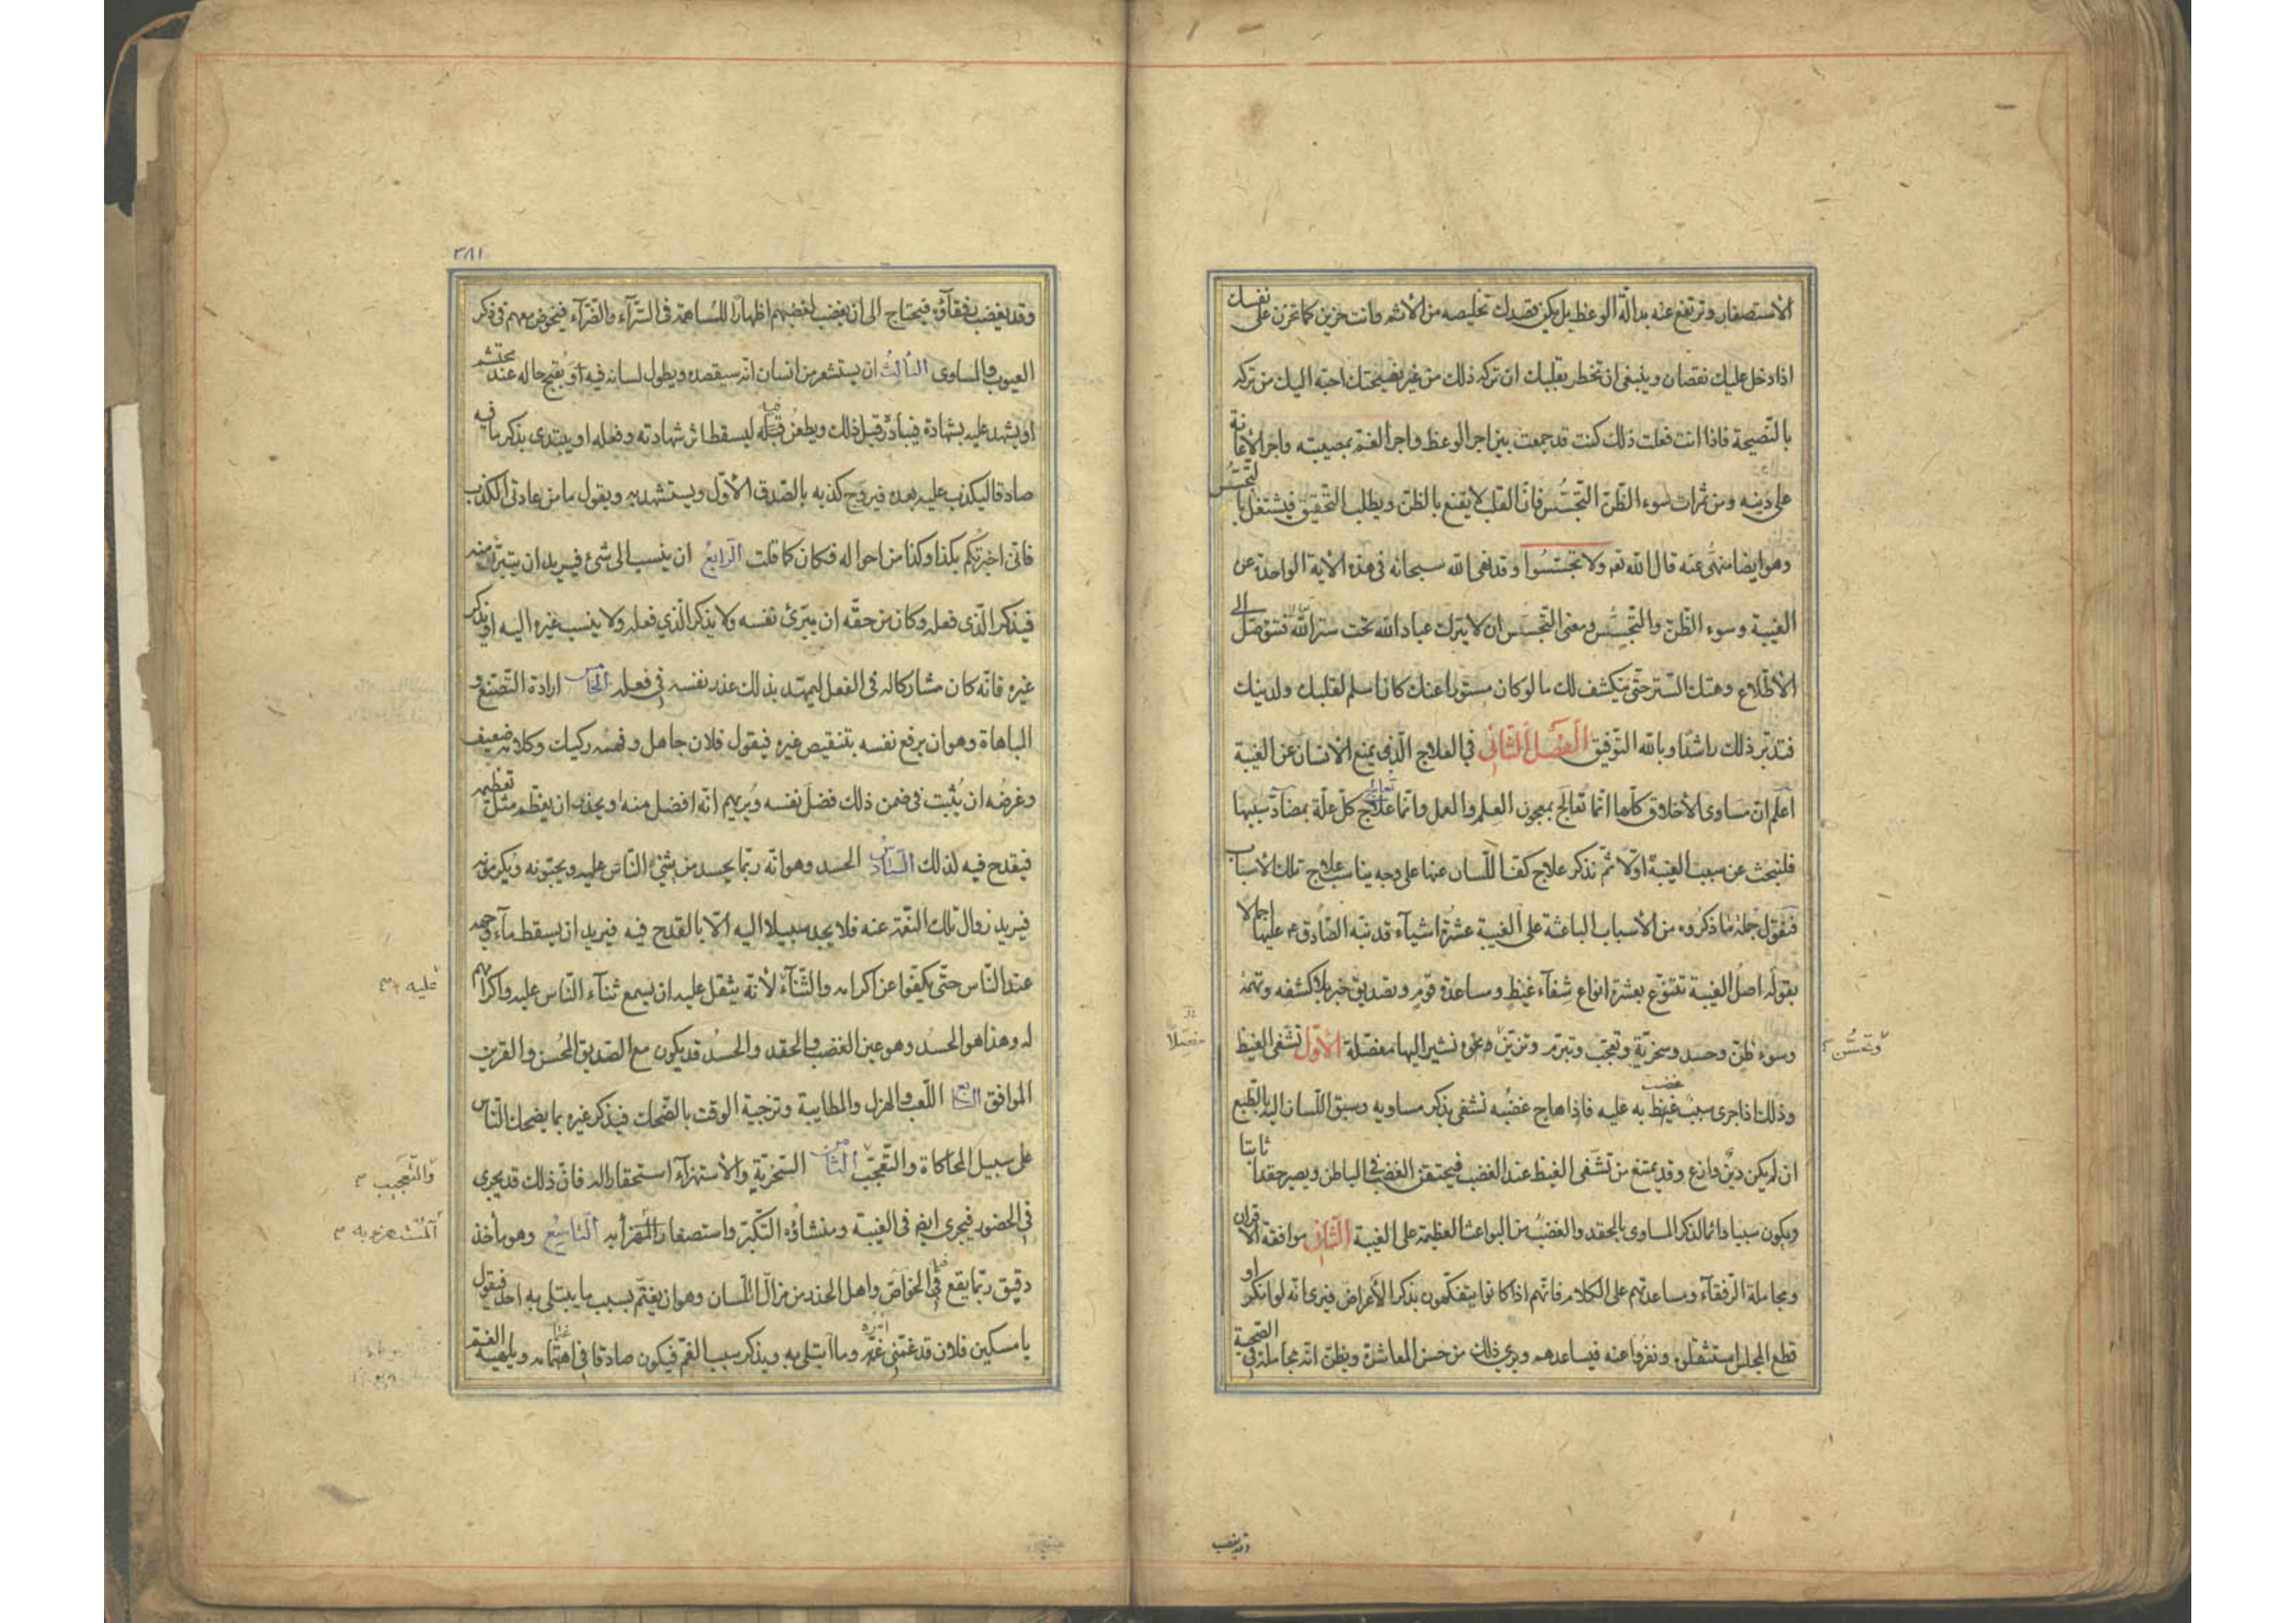 الاستصغار وترتفع عنه بدالّة الوعظ بل يكن قصدك تخليصه من الأثم وانت حزين كما تحزن على نفسك
اذا دخل عليك نقصان وينبغى ان تخطر بقلبك ان تركه ذلك من غير نصيحتك احبّ اليك من تركه
بالنّصيحة فاذا انت فعلت ذلك كنت قد جمعت بين اجر الوعظ واجر الغم بمصيبته واجر الأعانة
على دينه ومن ثمرات سوء الظّنّ التّجسُّس فانّ القلب لا يقنع بالظّنّ ويطلب التّحقيق فيشتغل بالتّجسّس
وهو ايضا منهىّ عنه قال الله تعه ولا تجسّسُوا وقد نهى الله سبحانه فى هذه الأية الواحدة عن
الغيبة وسوء الظّنّ والتّجسّس ومعنى التّجسس ان لا يترك عباد الله تحت ستر الله فتتوصّل الى
الأطّلاع وهتك السّتر حتّى ينكشف لك ما لو كان مستورا عنك كان اسلم لقلبك ولدينك
فتدبّر ذلك راشدًا وبالله التّوفيق الفصل الثّانى فى العلاج الّذى يمنع الأنسان عن الغيبة
اعلم انّ مساوى الأخلاق كلّها انّما تعالج بمعجون العلم والعمل وانّما علاج كلّ علّة بمضادّة سببها
فلنبحث عن سبب الغيبة اوّلا ثمّ نذكر علاج كفّ اللّسان عنها على وجه يناسب علاج تلك الأسباب
فنقول جملة ما ذكروه من الأسباب الباعثة على الغيبة عشرة اشيآء قد نبّه الصّادق ع عليها اجمالا
بقوله اصل الغيبة تتنوّع بعشرة انواع شفآء غيظ ومساعدة قوم وتصديق خبر بلا كشفه وتهمة
وسوء ظنّ وحسد وسخريّة وتعجّب وتبرّم وتزيّن ونحوه نشير اليها مفصّلة الأوّل تشفّى الغيظ
وتجسُّس
مفصّلاً
وذلك اذا جرى سبب غيظ به عليه فاذا هاج غضبُه تشفى بذكر مساويه وسبق اللّسان اليه بالطّبع
غضب
ان لم يكن دينٌ وازع وقد يمتنع من تشفّى الغيظ عند الغضب فيحتقن الغضب فى الباطن ويصير حقدا ثابتا
ويكون سببا دائما لذكر المساوى بالحقد والغضب من البواعث العظيمة على الغيبة الثّانى موافقة الأقران
ومجاملة الرّفقآء ومساعدتهم على الكلام فانّهم اذا كانوا يتفكّهون بذكر الأعراض فيرى انّه لو انكر او
قطع المجلس استثقلوه ونفروا عنه فيساعدهم ويرى ذلك من حسن المعاشرة ويظنّ انّه مجاملة فى الصّحبة
وقد يغضب
٣٨١
وقد يغضب رفقآؤه فيحتاج الى ان يغضب لغضبهم اظهارًا للمُساهمة فى السّرّآء والضّرّآء فيخوض معهم فى ذكر
العيوب والمساوى الثالث ان يستشعر من انسان انّه سيقصده ويطول لسانه فيه او يُقبح حاله عند محتشم
او يشهد عليه بشهادة فيبادر قبل ذلك ويطعن فيه ليسقط اثر شهادته وفعله او يبتدى بذكر ما فيه
صادقا ليكذب عليه بعده فيروّج كذبه بالصّدق الأوّل ويستشهد به ويقول ما من عادتى الكذب
فانّى اخبرتكم بكذا وكذا من احواله فكان كما قلت الرّابع ان ينسب الى شئ فيريد ان يتبرّأ منه
فيذكر الّذى فعله وكان من حقّه ان يبرّئ نفسه ولا يذكر الّذي فعله ولا ينسب غيره اليه او يذكر
غيره فانّه كان مشاركا له فى الفعل ليمهّد بذلك عذر نفسه فى فعله الخامس ارادة التّصنّع و
المباهاة وهو ان يرفع نفسه بتنقيص غيره فيقول فلان جاهل وفهمه ركيك وكلامه ضعيف
وغرضُه ان يُثبت فى ضمن ذلك فضلَ نفسه ويُريهم انّه افضل منه او يحذر ان يعظّم مثل تعظيمه
فيقدح فيه لذلك السّادس الحسد وهو انّه ربّما يحسد من يثنى النّاس عليه ويحبّونه ويكرمونه
فيريد زوال تلك النّعمة عنه فلا يجد سبيلا اليه الّا بالقدح فيه فيريد ان يسقط مآء وجهه
عند النّاس حتّى يكفّوا عن اكرامه والثّنآء لأنّه يثقل عليه ان يسمع ثنآء النّاس عليه واكرامهم
عليه
له وهذا هو الحسد وهو عين الغضب والحقد والحسُد قد يكون مع الصّديق المُحسن والقرين
الموافق السّابع اللّعب والهزل والمطايبة وتزجية الوقت بالضّحك فيذكر غيره بما يضحك النّاس
على سبيل المحاكاة والتّعجّب الثّامن السّخريّة والأستهزآء استحقارا له فانّ ذلك قد يجرى
والتّعجيب
فى الحضور فيجرى ايضا فى الغيبة ومنشاؤه التّكبّر واستصغار المهزأ به التّاسع وهو مأخذ
المُسْتهزء به
دقيق ربّما يقع فى الخواصّ واهل الحذر من مزالّ اللّسان وهو ان يغتمّ بسبب ما يبتلى به احد فيقول
يا مسكين فلان قد غمّنى امره وما ابتلى به ويذكر سبب الغمّ فيكون صادقا فى اهتمامه ويلهيه الغم